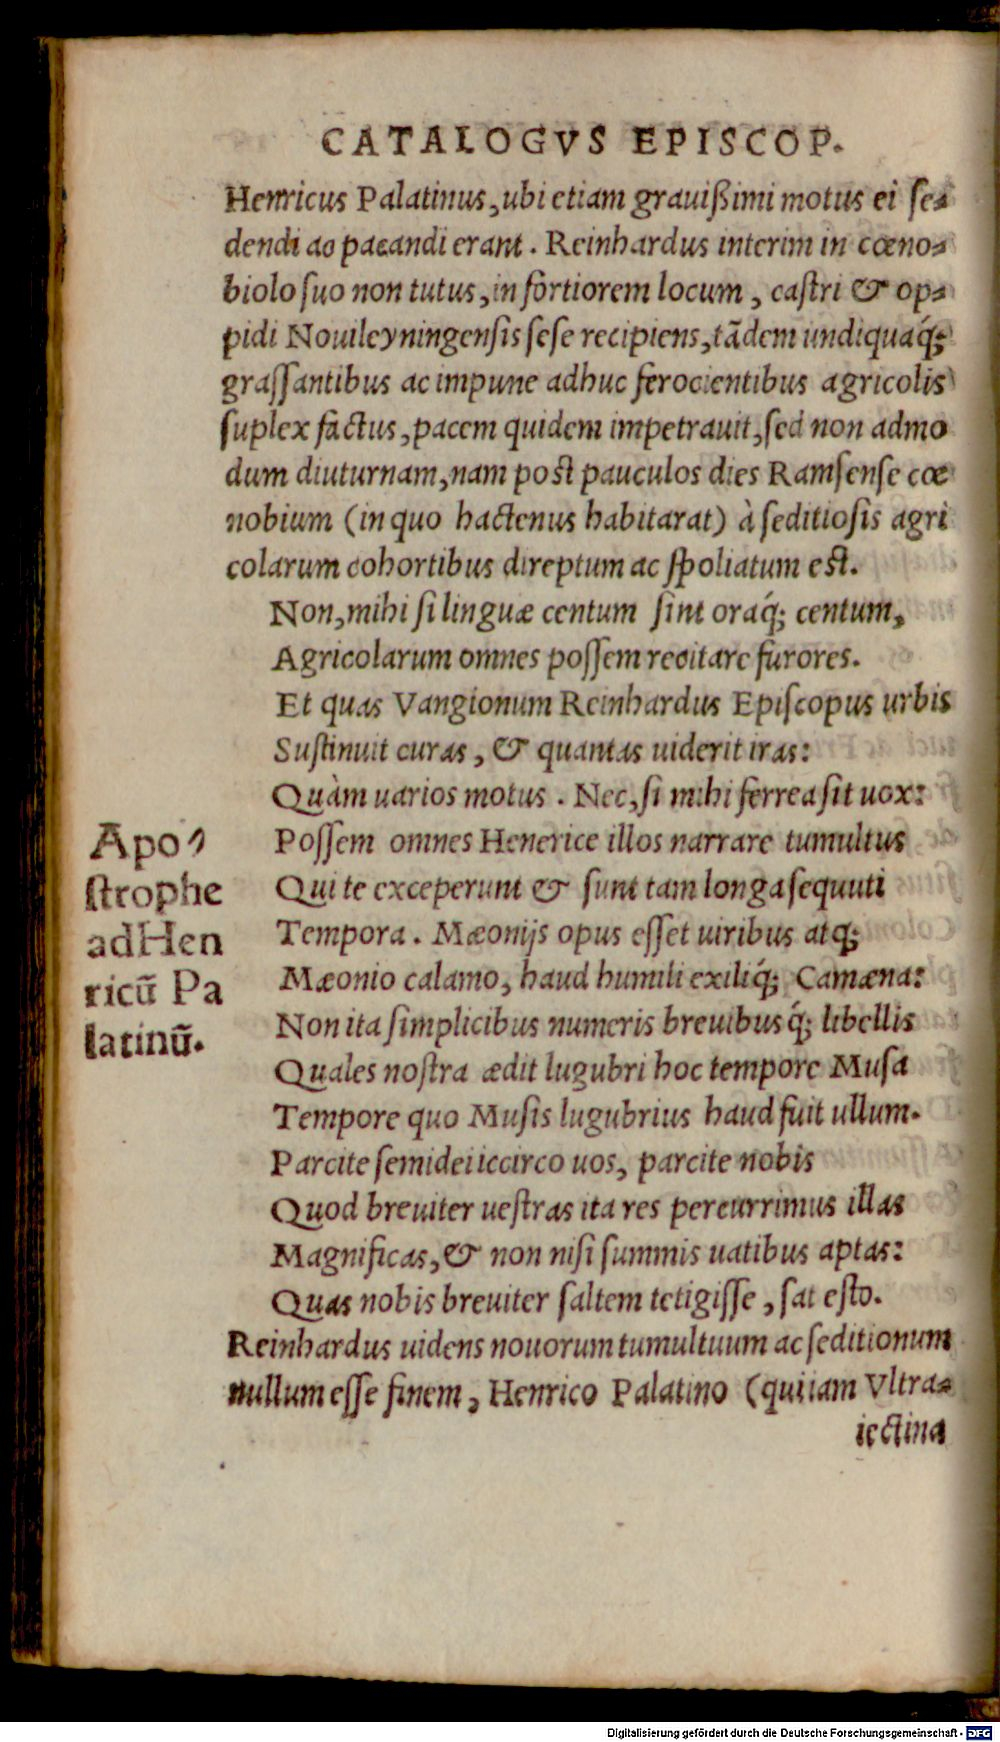 CATALOGVS EPISCOP.
Henricus Palatinus, ubi etiam grauißimi motus ei se-
dendi ac pacandi erant. Reinhardus interim in cœno-
biolo suo non tutus, in fortiorem locum, castri & op-
pidi Nouileyningensis sese recipiens, tãdem undiquaq́;
grassantibus ac impune adhuc ferocientibus agricolis
suplex factus, pacem quidem impetrauit, sed non admo
dum diuturnam, nam post pauculos dies Ramsense cœ
nobium (in quo hactenus habitarat) à seditiosis agri
colarum cohortibus direptum ac spoliatum est.
Non, mihi si linguæ centum sint oraq́; centum,
Agricolarum omnes possem recitare furores.
Et quas Vangionum Reinhardus Episcopus urbis
Sustinuit curas, & quantas uiderit iras:
Quàm uarios motus. Nec, si mihi ferrea sit uox:
Possem omnes Henerice illos narrare tumultus
Qui te exceperunt & sunt tam longa sequuti
Tempora. Mæonijs opus esset uiribus atq;
Mæonio calamo, haud humili exiliq́; Camæna:
Non ita simplicibus numeris breuibusq́; libellis
Quales nostra ædit lugubri hoc tempore Musa
Tempore quo Musis lugubrius haud fuit ullum.
Parcite semidei iccirco uos, parcite nobis
Quod breuiter uestras ita res percurrimus illas
Magnificas, & non nisi summis uatibus aptas:
Quas nobis breuiter saltem tetigisse, sat esto.
Reinhardus uidens nouorum tumultuum ac seditionum
nullum esse finem, Henrico Palatino (qui iam Vltra-
iectina
Apo-
strophe
ad Hen
ricũ Pa
latinũ.
Digitalisierung gefördert durch die Deutsche Forschungsgemeinschaft - DFG